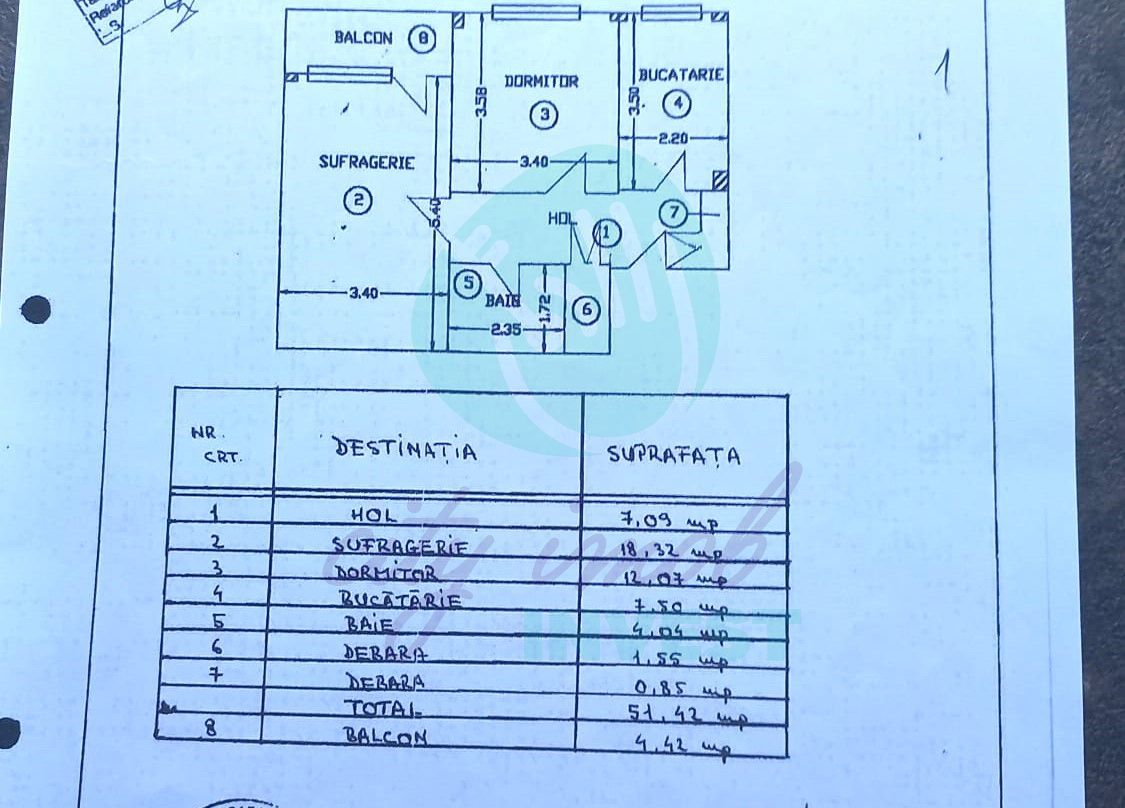 1
BALCON 8
DORMITOR
3
BUCATARIE
4
3.58
3.50
2.20
3.40
SUFRAGERIE
2
5.40
HOL
1
7
3.40
5
BAIE
1.72
6
2.35
NR. CRT. DESTINAȚIA SUPRAFAȚA
1 HOL 7,09 mp
2 SUFRAGERIE 18,32 mp
3 DORMITOR 12,07 mp
4 BUCĂTĂRIE 7,50 mp
5 BAIE 4,04 mp
6 DEBARA 1,55 mp
7 DEBARA 0,85 mp
TOTAL 51,42 mp
8 BALCON 4,42 mp
city imob
INVEST